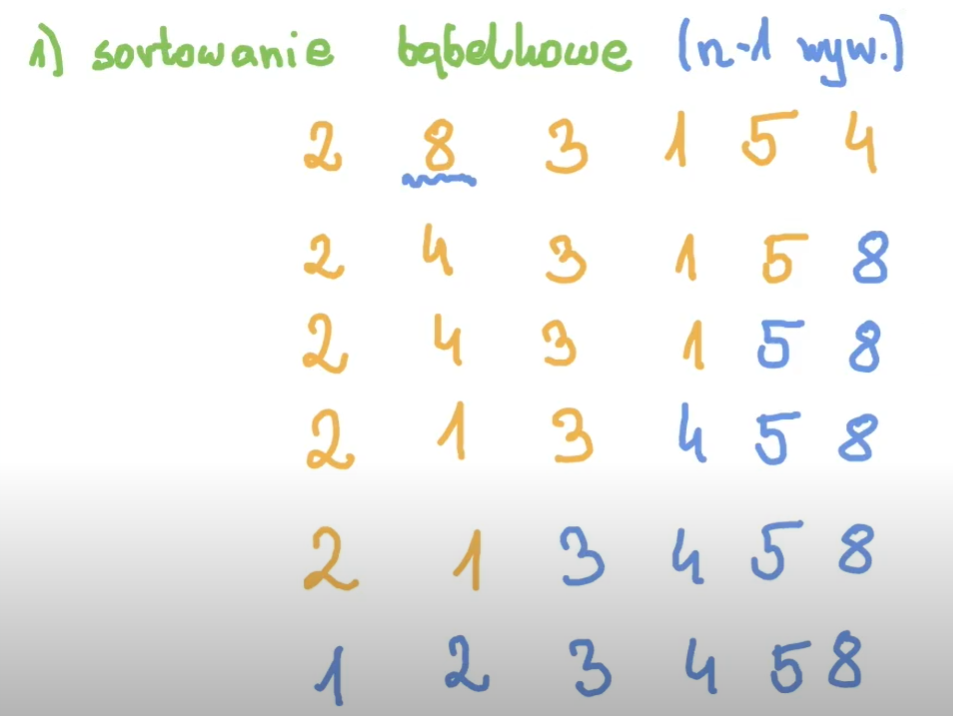 1) sortowanie bąbelkowe (n-1 wyw.)
2 8 3 1 5 4
2 4 3 1 5 8
2 4 3 1 5 8
2 1 3 4 5 8
2 1 3 4 5 8
1 2 3 4 5 8